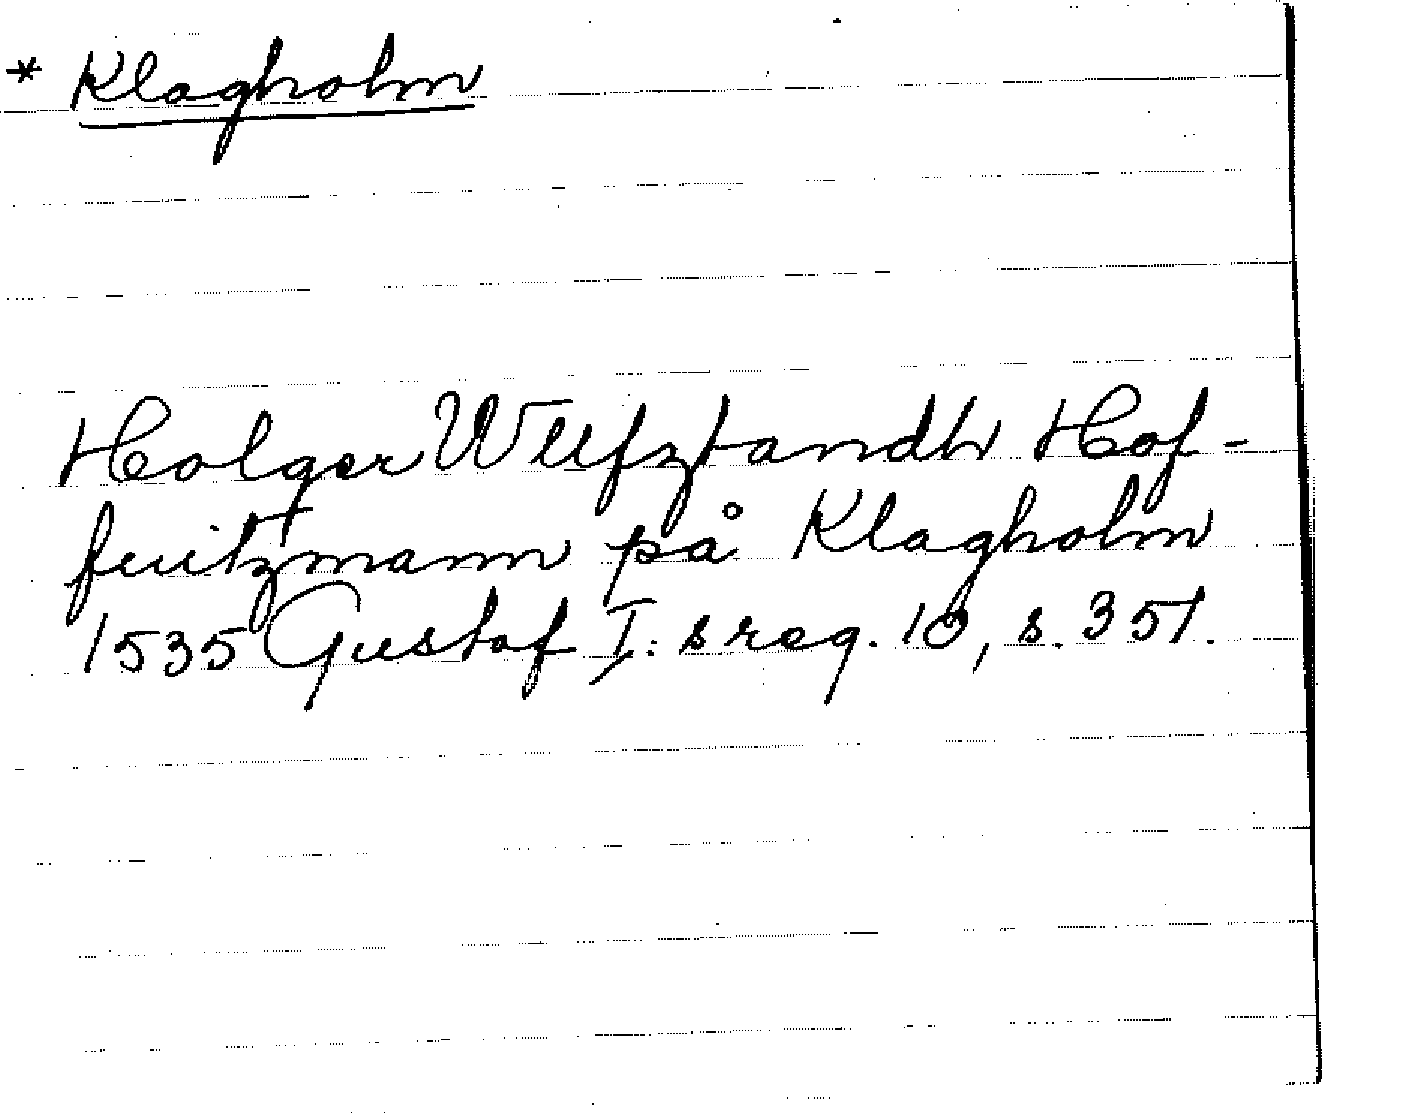 * Klagholm
Holger Wlfztandh Hof-
fuitzmann på Klagholm
1535 Gustof I: s reg. 10, s. 351.